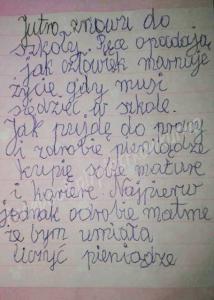 Jutro znowu do
szkołej. Ręce opadają
jak człowiek marnuje
życie gdy musi
siedzieć w szkole.
Jak pujdę do pracy
i zdrobie pieniądze
kupię sobie mature
i kariere. Najpierw
jednak odrobie matme
że bym umiała
liczyć pieniądze